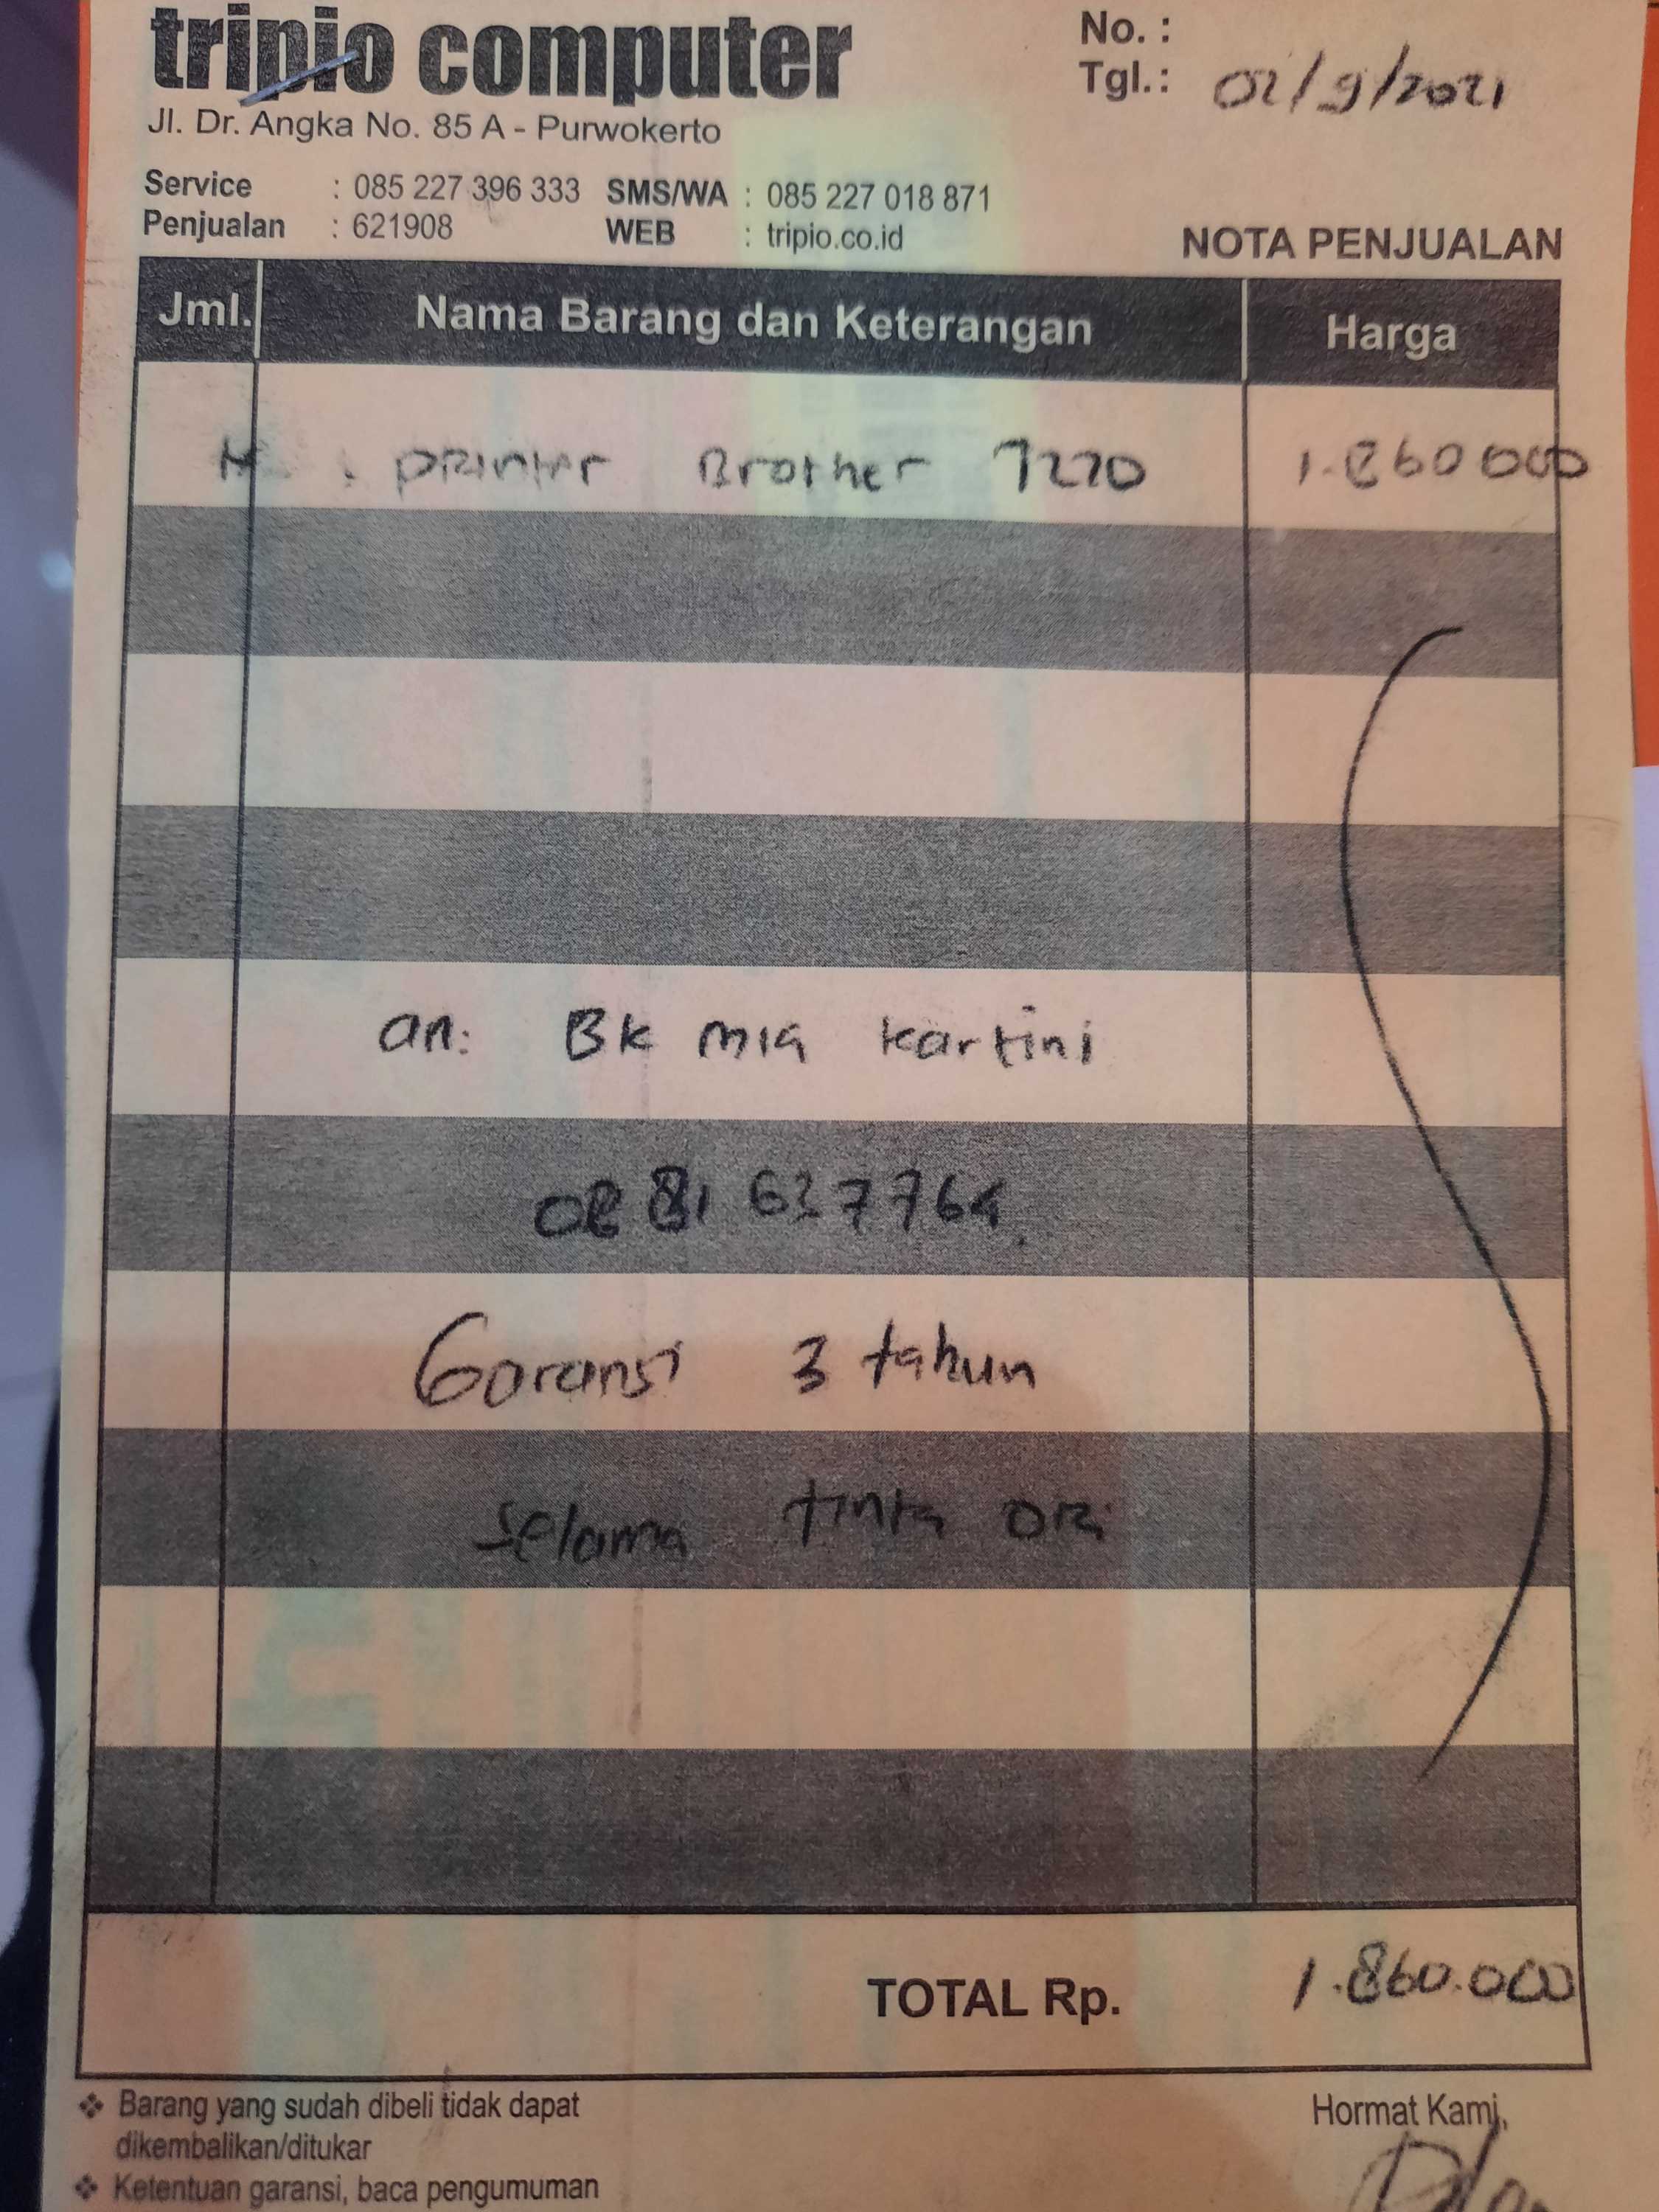 tripio computer
No. :
Tgl.: 02/9/2021
Jl. Dr. Angka No. 85 A - Purwokerto
Service : 085 227 396 333 SMS/WA : 085 227 018 871
Penjualan : 621908 WEB : tripio.co.id
NOTA PENJUALAN
Jml. Nama Barang dan Keterangan Harga
printer Brother 7220 1.860000
an: Bk mia kartini
0881637764
Garansi 3 tahun
selama tinta ori
TOTAL Rp. 1.860.000
❖ Barang yang sudah dibeli tidak dapat
dikembalikan/ditukar
Hormat Kami,
❖ Ketentuan garansi, baca pengumuman